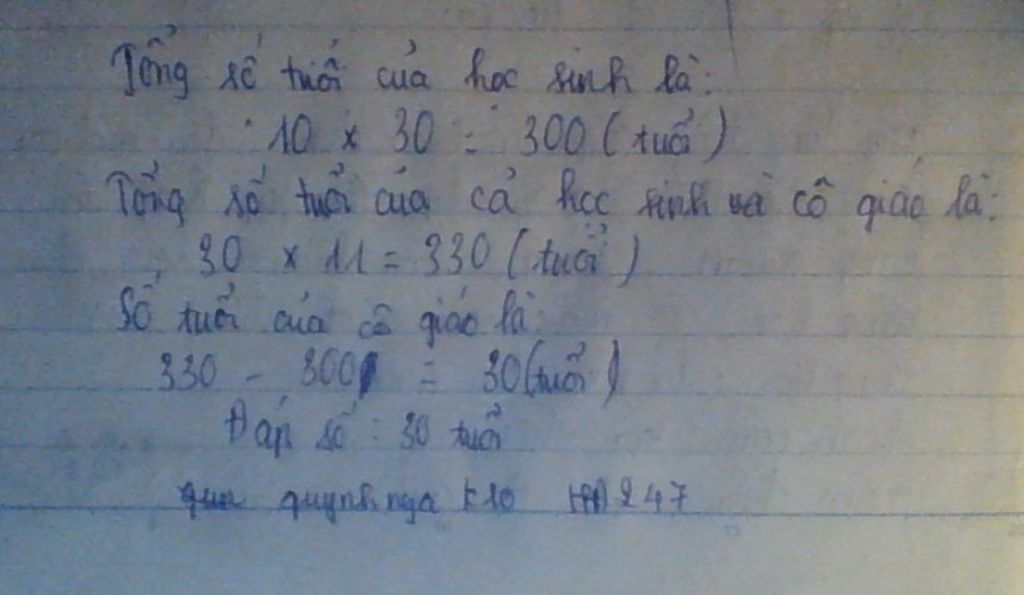 Tổng số tuổi của học sinh là:
10 x 30 = 300 (tuổi)
Tổng số tuổi của cả học sinh và cô giáo là:
30 x 11 = 330 (tuổi)
Số tuổi của cô giáo là:
330 - 300 = 30 (tuổi)
Đáp số : 30 tuổi
quynh nga 247